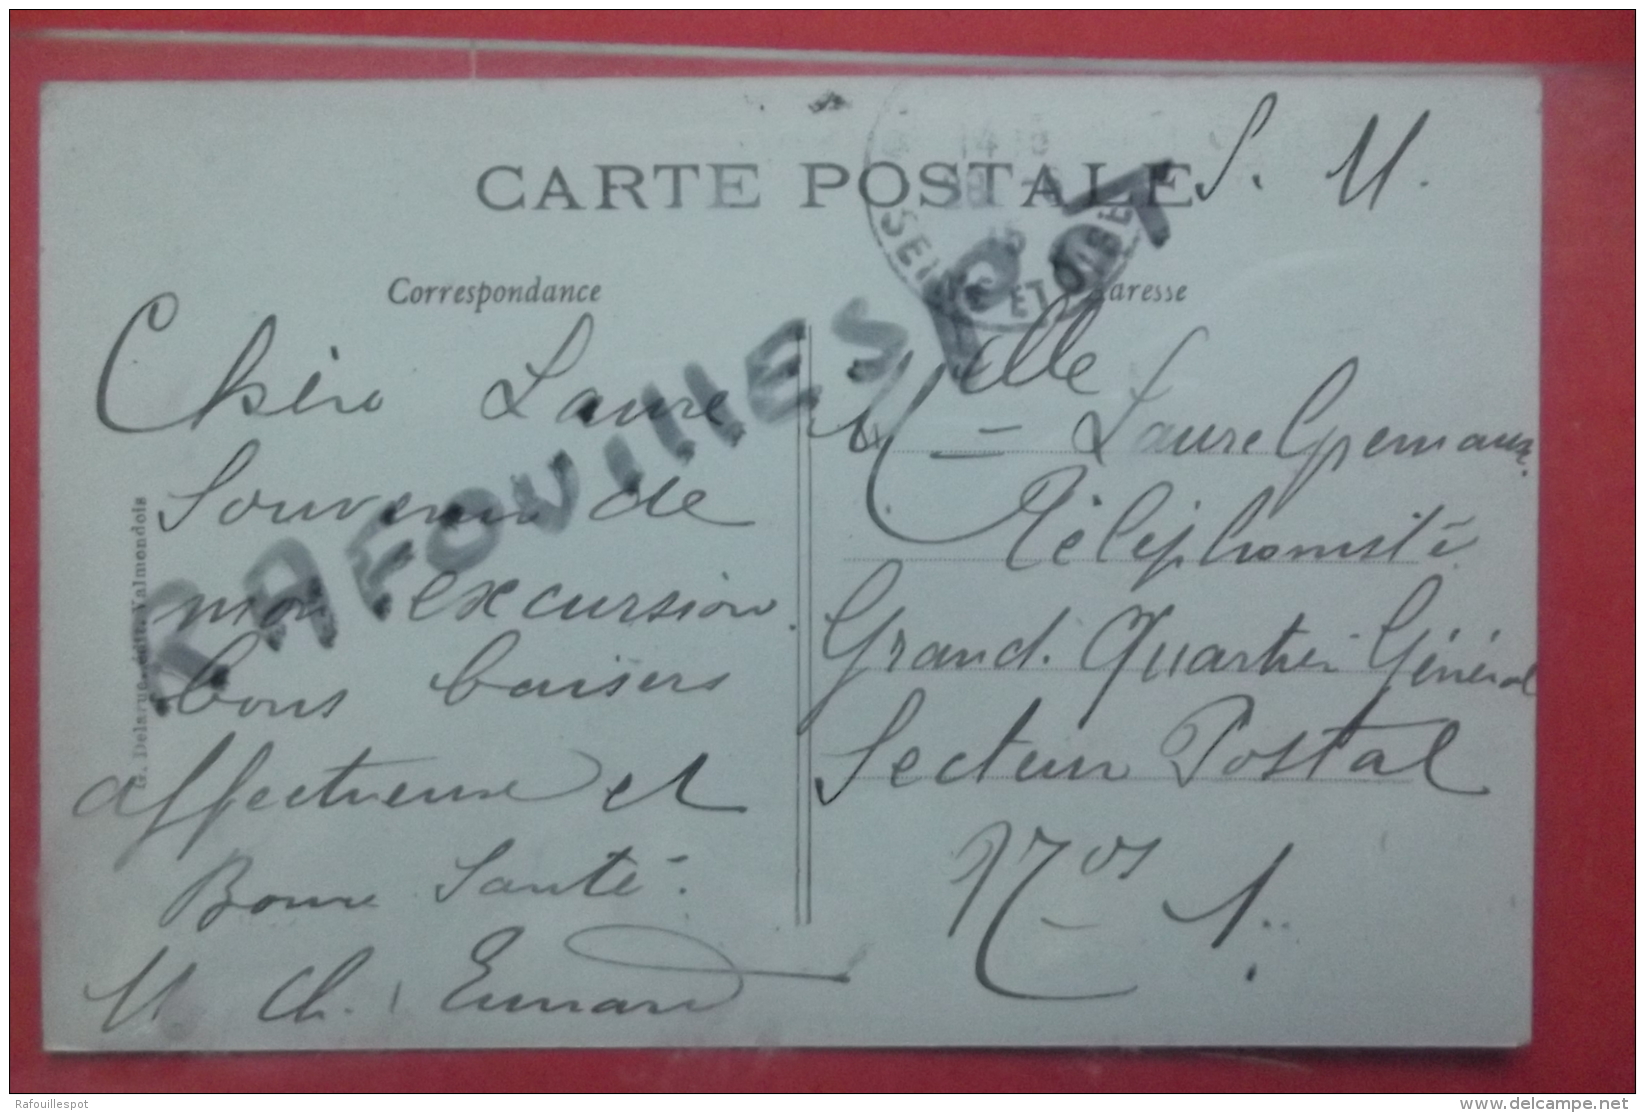 S. M.
CARTE POSTALE
14 15
SEINE ET OISE
Correspondance
Adresse
RAFOUILLESPOT
Chère Laure
Souvenir de
mon excursion.
bons baisers
affectueux et
Bonne Santé.
M Ch.
G. Delarue, édit. Valmondois
Melle Laure Gremaux
Téléphoniste
Grand. Quartier Général
Secteur Postal
Nos 1.
Rafouillespot
delcampe.net